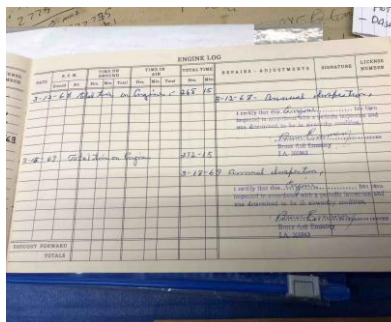 ENGINE LOG
DATE R.P.M. TIME ON GROUND TIME IN AIR TOTAL TIME REPAIRS - ADJUSTMENTS SIGNATURE LICENSE NUMBER
Ground Air Hrs. Min. Total Hrs. Min. Total Hrs. Min.
3-12-68 Total time on Engine - 268 15 3-12-68 - Annual Inspection,
I certify that this Engine has been
inspected in accordance with a periodic inspection and
was determined to be in airworthy condition.
Bruce
I.A.
3-18-69 Total time on Engine 272-15
3-18-69 Annual Inspection,
I certify that this Engine has been
inspected in accordance with a periodic inspection and
was determined to be in airworthy condition.
Bruce
I.A.
BROUGHT FORWARD
TOTALS